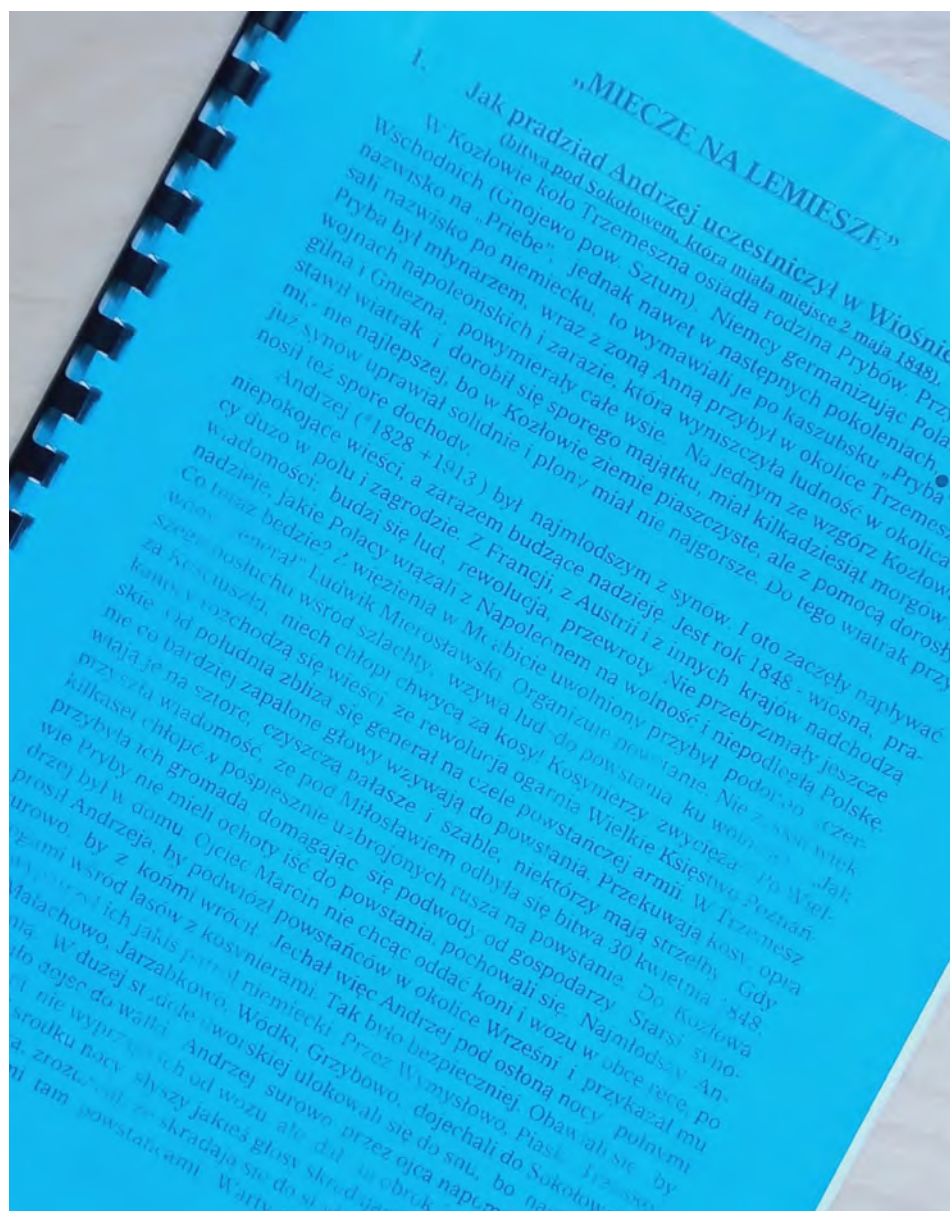 „MIECZE NA LEMIESZE”
1.
Jak pradziad Andrzej uczestniczył w Wiośnie
(bitwa pod Sokołowem, która miała miejsce 2 maja 1848).
W Kozłowie koło Trzemeszna osiadła rodzina Prybów. Przy
Wschodnich (Gnojewo pow. Sztum). Niemcy germanizując Pola
nazwisko na „Priebe”, jednak nawet w następnych pokoleniach,
sali nazwisko po niemiecku, to wymawiali je po kaszubsku „Pryba
Pryba był młynarzem, wraz z żoną Anną przybył w okolice Trzemes
wojnach napoleońskich i zarazie, która wyniszczyła ludność w okolica
gilna i Gniezna, powymierały całe wsie. Na jednym ze wzgórz Kozłow
stawił wiatrak i dorobił się sporego majątku, miał kilkadziesiąt morgów
mi,- nie najlepszej, bo w Kozłowie ziemie piaszczyste, ale z pomocą dorosły
już synów uprawiał solidnie i plony miał nie najgorsze. Do tego wiatrak przy
nosił też spore dochody.
Andrzej (*1828 +1913 ) był najmłodszym z synów. I oto zaczęły napływać
niepokojące wieści, a zarazem budzące nadzieję. Jest rok 1848 - wiosna, pra-
cy dużo w polu i zagrodzie. Z Francji, z Austrii i z innych krajów nadchodzą
wiadomości: budzi się lud, rewolucja, przewroty. Nie przebrzmiały jeszcze
nadzieje, jakie Polacy wiązali z Napoleonem na wolność i niepodległą Polskę.
Co teraz będzie? Z więzienia w Moabicie uwolniony przybył podobno
Ludwik Mierosławski. Organizuje powstanie. Nie
posłuchu wśród szlachty, wzywa lud do powstania ku
za Kościuszki, niech chłopi chwycą za kosy! Kosynierzy zwyciężą
rozchodzą się wieści, że rewolucja ogarnia Wielkie Księstwo Poznań-
skie. Od południa zbliża się generał na czele powstańczej armii. W Trzemesz
nie co bardziej zapalone głowy wzywają do powstania. Przekuwają kosy, opra
wiają je na sztorc, czyszczą pałasze i szable, niektórzy mają strzelby. Gdy
przyszła wiadomość, że pod Miłosławiem odbyła się bitwa 30 kwietnia 848
kilkaset chłopów pospiesznie uzbrojonych rusza na powstanie. Do Kozłowa
przybyła ich gromada domagając się podwody od gospodarzy. Starsi syno-
wie Pryby nie mieli ochoty iść do powstania, pochowali się. Najmłodszy An-
drzej był w domu. Ojciec Marcin nie chcąc oddać koni i wozu w obce ręce, po
prosił Andrzeja, by podwiózł powstańców w okolice Wrześni i przykazał mu
surowo, by z końmi wrócił. Jechał więc Andrzej pod osłoną nocy polnymi
wśród lasów z kosynierami. Tak było bezpieczniej. Obawiali się by
ich jakiś niemiecki. Przez Wymysłowo, Piask
Małachowo, Jarząbkowo, Wódki, Grzybowo, dojechali do Sokołow
W dużej dworskiej ulokowali się do snu, bo
dojść do walki. Andrzej surowo przez ojca napom
nie od wozu, ale dał
nocy słyszy jakieś głosy
że skradają się do
tam powstańcami. Warty